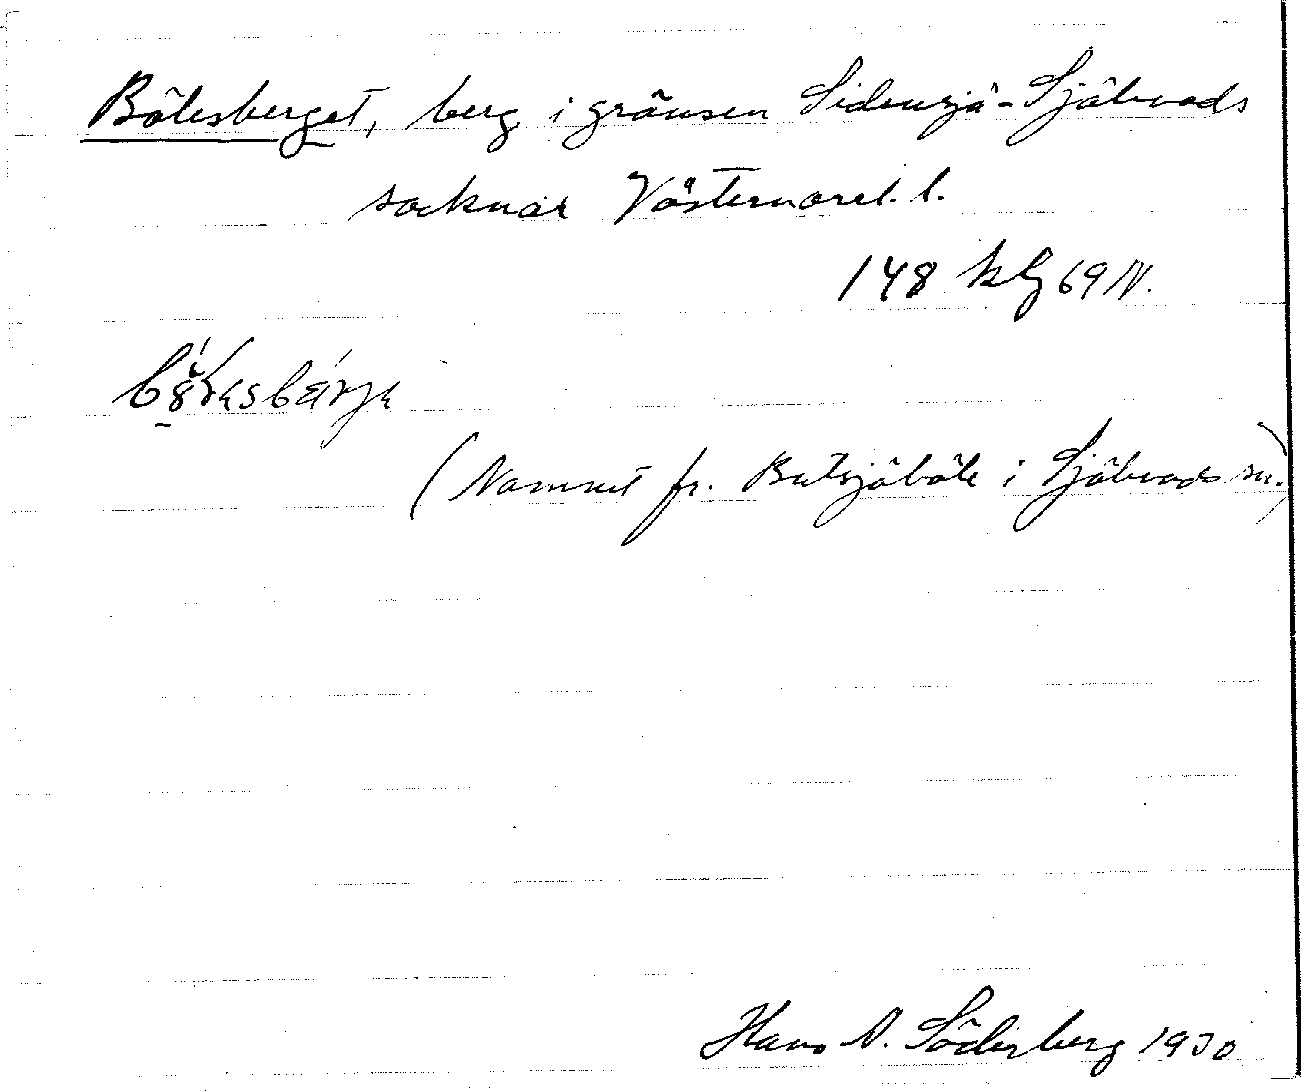 Bölesberget, berg i gränsen Sidensjö-Själevads
socknar Västernorrl. l.
148 kbg 69 N.
(Namnet fr. Butsjöböle i Själevads sn.)
Hans N. Söderberg 1930